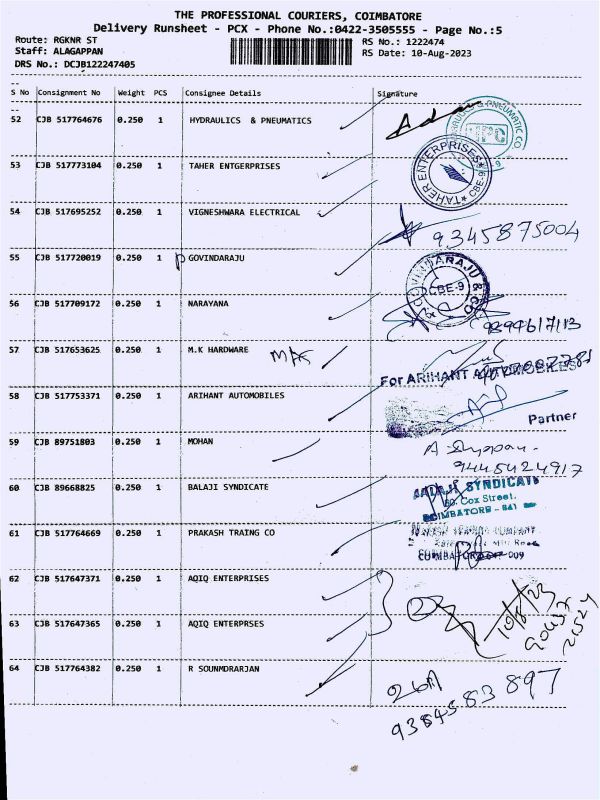 THE PROFESSIONAL COURIERS, COIMBATORE
Delivery Runsheet - PCX - Phone No.:0422-3505555 - Page No.:5
Route: RGKNR ST
RS No.: 1222474
Staff: ALAGAPPAN
RS Date: 10-Aug-2023
DRS No.: DCJB122247405
S No Consignment No Weight PCS Consignee Details Signature
52 CJB 517764676 0.250 1 HYDRAULICS & PNEUMATICS
53 CJB 517773104 0.250 1 TAHER ENTGERPRISES
TAHER ENTERPRISES CBE-9
54 CJB 517695252 0.250 1 VIGNESHWARA ELECTRICAL
9345875004
55 CJB 517720019 0.250 1 GOVINDARAJU
GOVINDARAJU & CO CBE-9
56 CJB 517709172 0.250 1 NARAYANA
57 CJB 517653625 0.250 1 M.K HARDWARE
For ARIHANT AUTOMOBILES
58 CJB 517753371 0.250 1 ARIHANT AUTOMOBILES
Partner
59 CJB 89751803 0.250 1 MOHAN
9445424917
60 CJB 89668825 0.250 1 BALAJI SYNDICATE
BALAJI SYNDICATE
Cox Street,
COIMBATORE - 641
61 CJB 517764669 0.250 1 PRAKASH TRAING CO
62 CJB 517647371 0.250 1 AQIQ ENTERPRISES
10/8/23
63 CJB 517647365 0.250 1 AQIQ ENTERPRSES
64 CJB 517764382 0.250 1 R SOUNMDRARJAN
9384583897